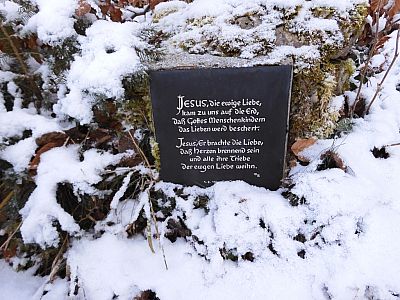 Jesus, die ewige Liebe,
kam zu uns auf die Erd,
daß Gottes Menschenkindern
das Lieben werd beschert:
Jesus: Er brachte die Liebe,
daß Herzen brennend sein
und alle ihre Triebe
der ewgen Liebe weihn.